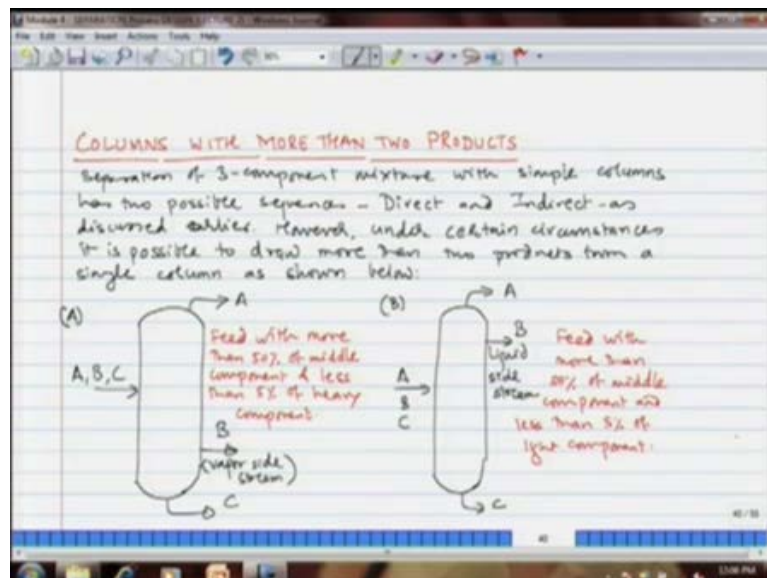 Module 4 - SEPARATION Process DESIGN (LECTURE 2) - Windows Journal
File Edit View Insert Actions Tools Help
COLUMNS WITH MORE THAN TWO PRODUCTS
Separation of 3-component mixture with simple columns
has two possible sequences - Direct and Indirect - as
discussed earlier. However, under certain circumstances
it is possible to draw more than two products from a
single column as shown below:
(A)
A
A, B, C
Feed with more
than 50% of middle
component & less
than 5% of heavy
component
B
(vapor side
stream)
C
(B)
A
A
B
C
B
Liquid
side
stream
Feed with
more than
50% of middle
component and
less than 5% of
light component.
C
40
12:08 PM